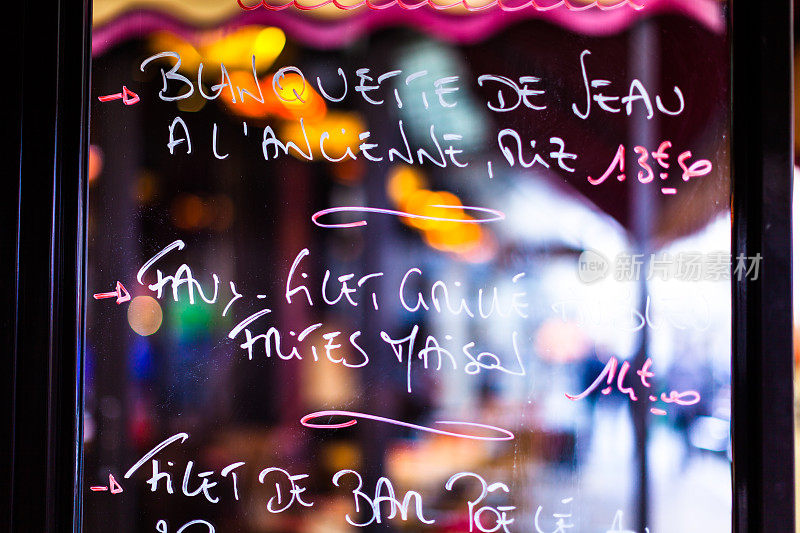 → BLANQUETTE DE JEAU
A L'ANCIENNE, RIZ 13€50
→ FAUX-FILET GRILLÉ
FRITES MAISON 14€00
→ FILET DE BAR POÊLÉ
新图网